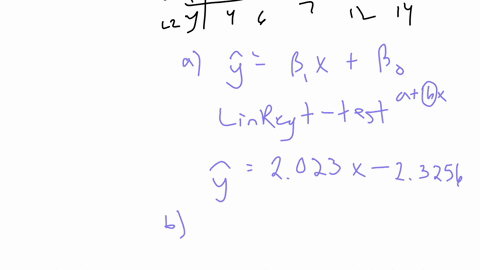 L2 y | 4 6 7 12 14
a) ŷ = β₁x + β₀
LinRegt-test a+bx
ŷ = 2.023x - 2.3256
b)